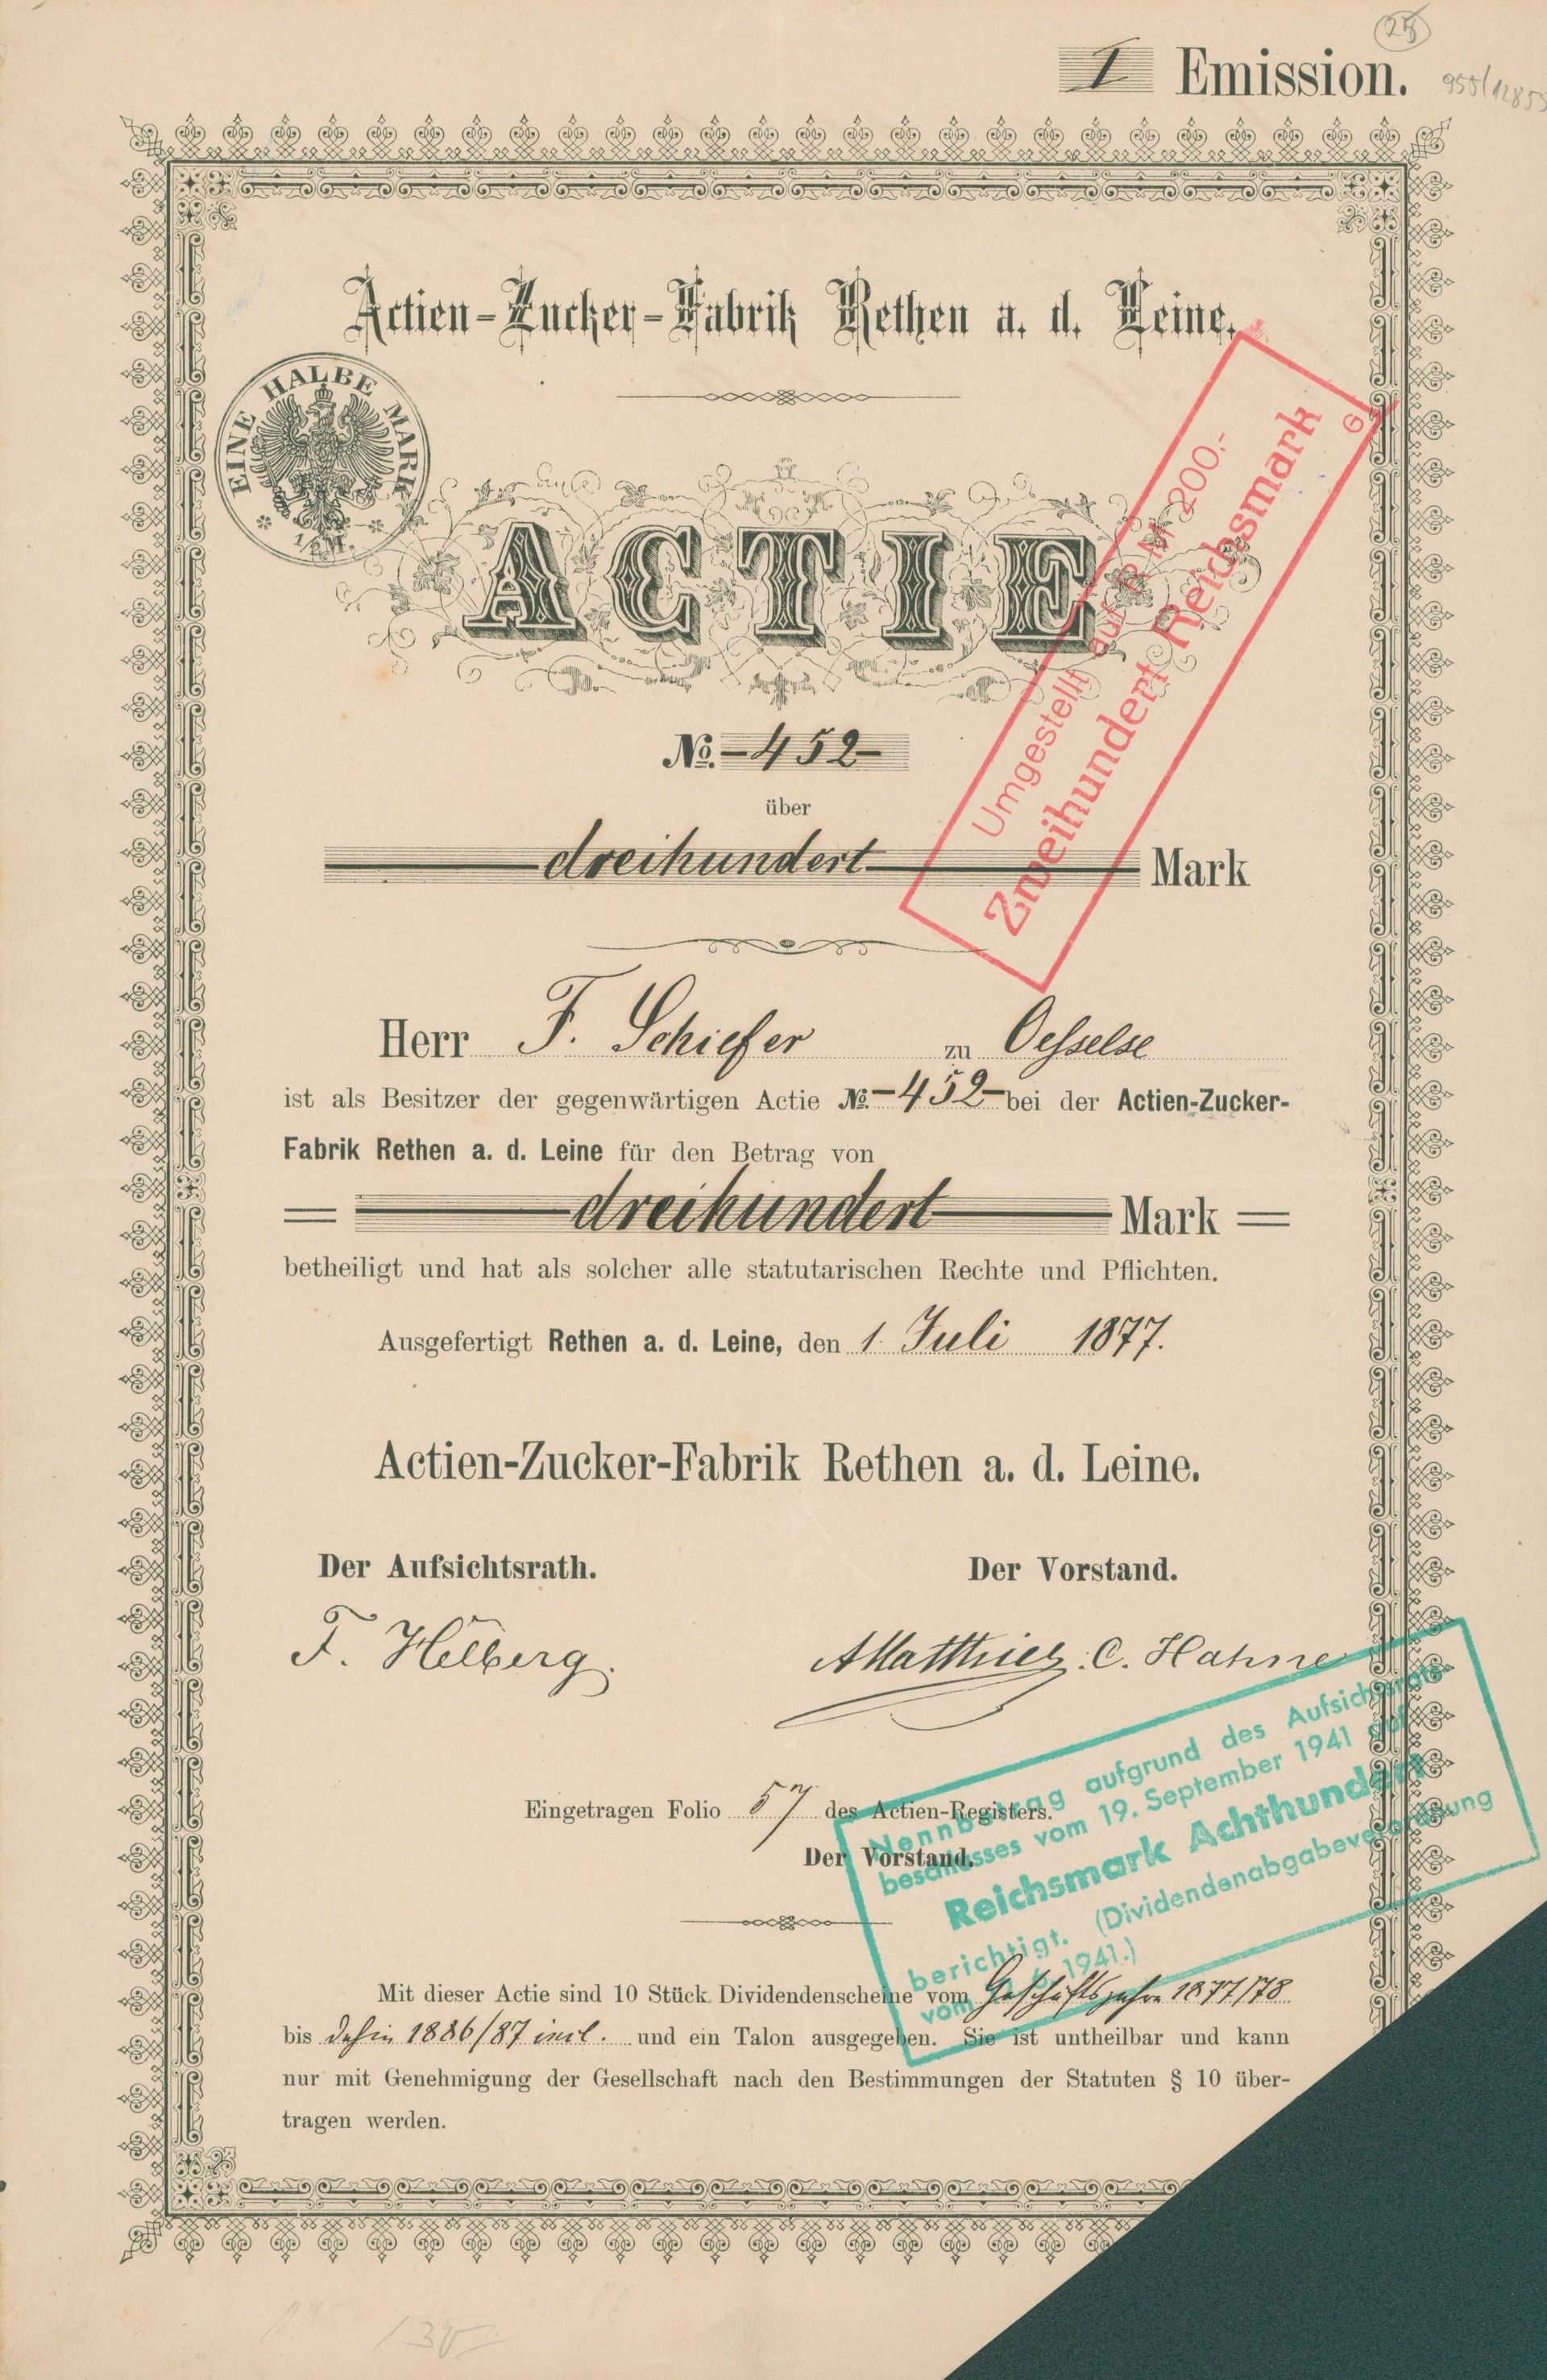 25
I Emission.
955/12855
Actien-Zucker-Fabrik Rethen a. d. Leine.
EINE HALBE MARK
1/2 M.
ACTIE
Umgestellt auf RM 200.-
Zweihundert Reichsmark
G.
No. 452
über
dreihundert Mark
Herr F. Schiefer zu Oesselse
ist als Besitzer der gegenwärtigen Actie No. 452 bei der Actien-Zucker-
Fabrik Rethen a. d. Leine für den Betrag von
dreihundert Mark
betheiligt und hat als solcher alle statutarischen Rechte und Pflichten.
Ausgefertigt Rethen a. d. Leine, den 1. Juli 1877.
Actien-Zucker-Fabrik Rethen a. d. Leine.
Der Aufsichtsrath. Der Vorstand.
F. Helberg. AMatthies. C. Hahne
Eingetragen Folio 57 des Actien-Registers.
Der Vorstand.
Nennbetrag aufgrund des Aufsichtsrats-
beschlusses vom 19. September 1941 auf
Reichsmark Achthundert
berichtigt. (Dividendenabgabeverordnung
vom 1941.)
Mit dieser Actie sind 10 Stück Dividendenscheine vom Geschäftsjahre 1877/78
bis dahin 1886/87 incl. und ein Talon ausgegeben. Sie ist untheilbar und kann
nur mit Genehmigung der Gesellschaft nach den Bestimmungen der Statuten § 10 über-
tragen werden.